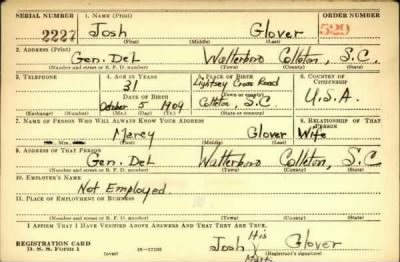 SERIAL NUMBER 1. NAME (Print) ORDER NUMBER
2227 Josh Glover 529
(First) (Middle) (Last)
2. ADDRESS (Print)
Gen. Del. Walterboro Colleton, S.C.
(Number and street or R. F. D. number) (Town) (County) (State)
3. TELEPHONE 4. AGE IN YEARS 5. PLACE OF BIRTH 6. COUNTRY OF CITIZENSHIP
31 Lightsey Cross Road
DATE OF BIRTH (Town or county)
October 5 1909 Colleton, S.C. U.S.A.
(Exchange) (Number) (Mo.) (Day) (Yr.) (State or country)
7. NAME OF PERSON WHO WILL ALWAYS KNOW YOUR ADDRESS 8. RELATIONSHIP OF THAT PERSON
Mrs. Mercy Glover Wife
(First) (Middle) (Last)
9. ADDRESS OF THAT PERSON
Gen. Del. Walterboro Colleton, S.C.
(Number and street or R. F. D. number) (Town) (County) (State)
10. EMPLOYER'S NAME
Not Employed.
11. PLACE OF EMPLOYMENT OR BUSINESS
(Number and street or R. F. D. number) (Town) (County) (State)
I AFFIRM THAT I HAVE VERIFIED ABOVE ANSWERS AND THAT THEY ARE TRUE.
REGISTRATION CARD His
D. S. S. Form 1 (over) Josh X Glover
Mark (Registrant's signature)